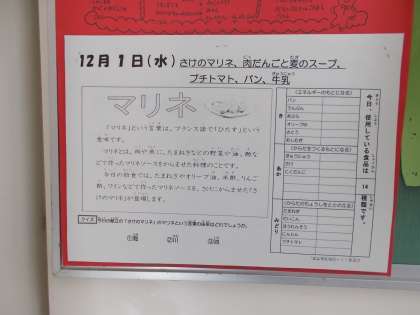 12月1日(水) さけのマリネ、肉だんごと麦のスープ、
プチトマト、パン、牛乳
マリネ
「マリネ」という言葉は、フランス語で「ひたす」という
意味です。
マリネとは、肉や魚に、たまねぎなどの野菜や油、酢な
どで作ったマリネソースをからませた料理のことです。
今日の給食では、たまねぎやオリーブ油、米酢、りんご
酢、ワインなどで作ったマリネソースを、さけにからませた「さ
けのマリネ」が登場します。
クイズ 今日の献立の「さけのマリネ」のマリネという言葉の由来はどれでしょうか。
①海 ②川
今日、使用している食品は 14 種類です。
(エネルギーのもとになる)
き
パン
でんぷん
あぶら
オリーブゆ
さとう
(からだをつくるもとになる)
あか
ぎゅうにゅう
さけ
にくだんご
(からだのちょうしをととのえる)
みどり
たまねぎ
だいこん
ほうれんそう
にんじん
プチトマト